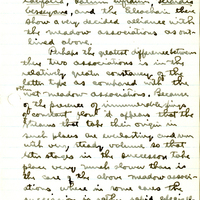 and the
show a very decided alliance with
the meadow associations as out-
lined above.
Perhaps the greatest difference between
these two associations is in the
relatively great constancy of the
latter type as compared to the
wet meadow associations. Because
of the presence of innumerable springs
of constant flow it appears that the
streams that take their origin in
such places are everlasting and run
with very steady volume so that
later stages in the succession take
place very much slower than in
the case of the above meadow associ-
ations, where in some cases the
succession is rather rapid